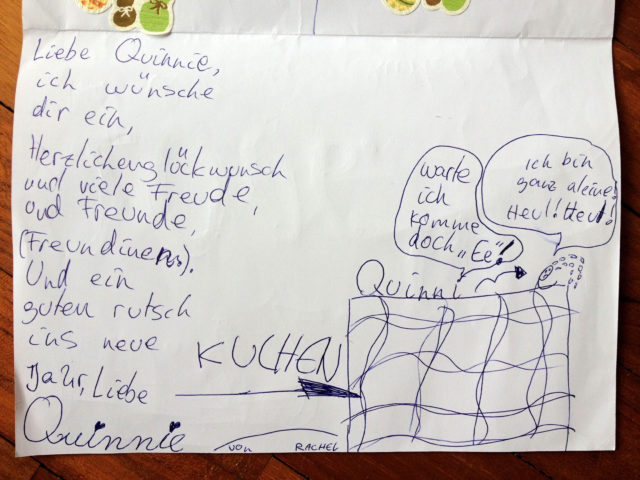 Liebe Quinnie,
ich wünsche
dir ein,
Herzlichenglückwunsch
und viele Freude,
und Freunde,
(Freundinens).
Und ein
guten rutsch
ins neue
Jahr, Liebe
Quinnie
von RACHEL
KUCHEN
warte
ich
komme
doch „Ee"!
ich bin
ganz aleine!
Heul! Heul!
Quinni